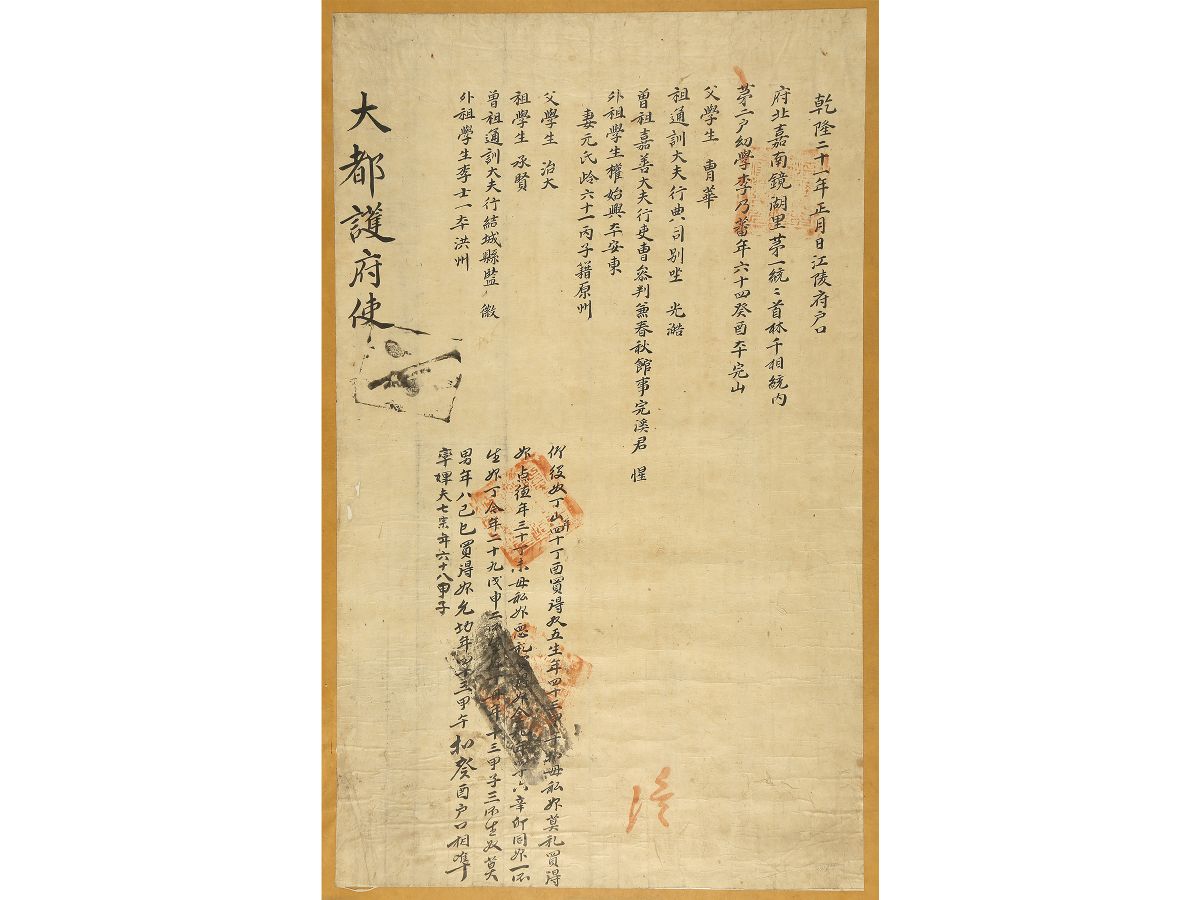 乾隆二十一年正月日江陵府户口
府北嘉南鏡湖里苐一統〻首林千相統内
苐二户幼學李乃蕃年六十四癸酉本完山
父學生 胄華
祖通訓大夫行典司别坐 光澔
曾祖嘉善大夫行吏曹叅判兼春秋館事完溪君 惺
外祖學生權始興本安東
妻元氏岭六十一丙子籍原州
父學生 治大
祖學生 承賢
曾祖通訓大夫行結城縣監 徽
外祖學生李士一本洪州
仰役奴丁山年四十丁酉買得奴五生年四十三 母私婢莫礼買得
婢点德年三十丁未母私婢 六辛卯同婢一所
生婢丁今年二十九戊申二所 十三甲子三所生奴莫
男年八己巳買得婢 年四十三甲午 癸酉户口相准
率婢夫七 年六十八甲子
大都護府使